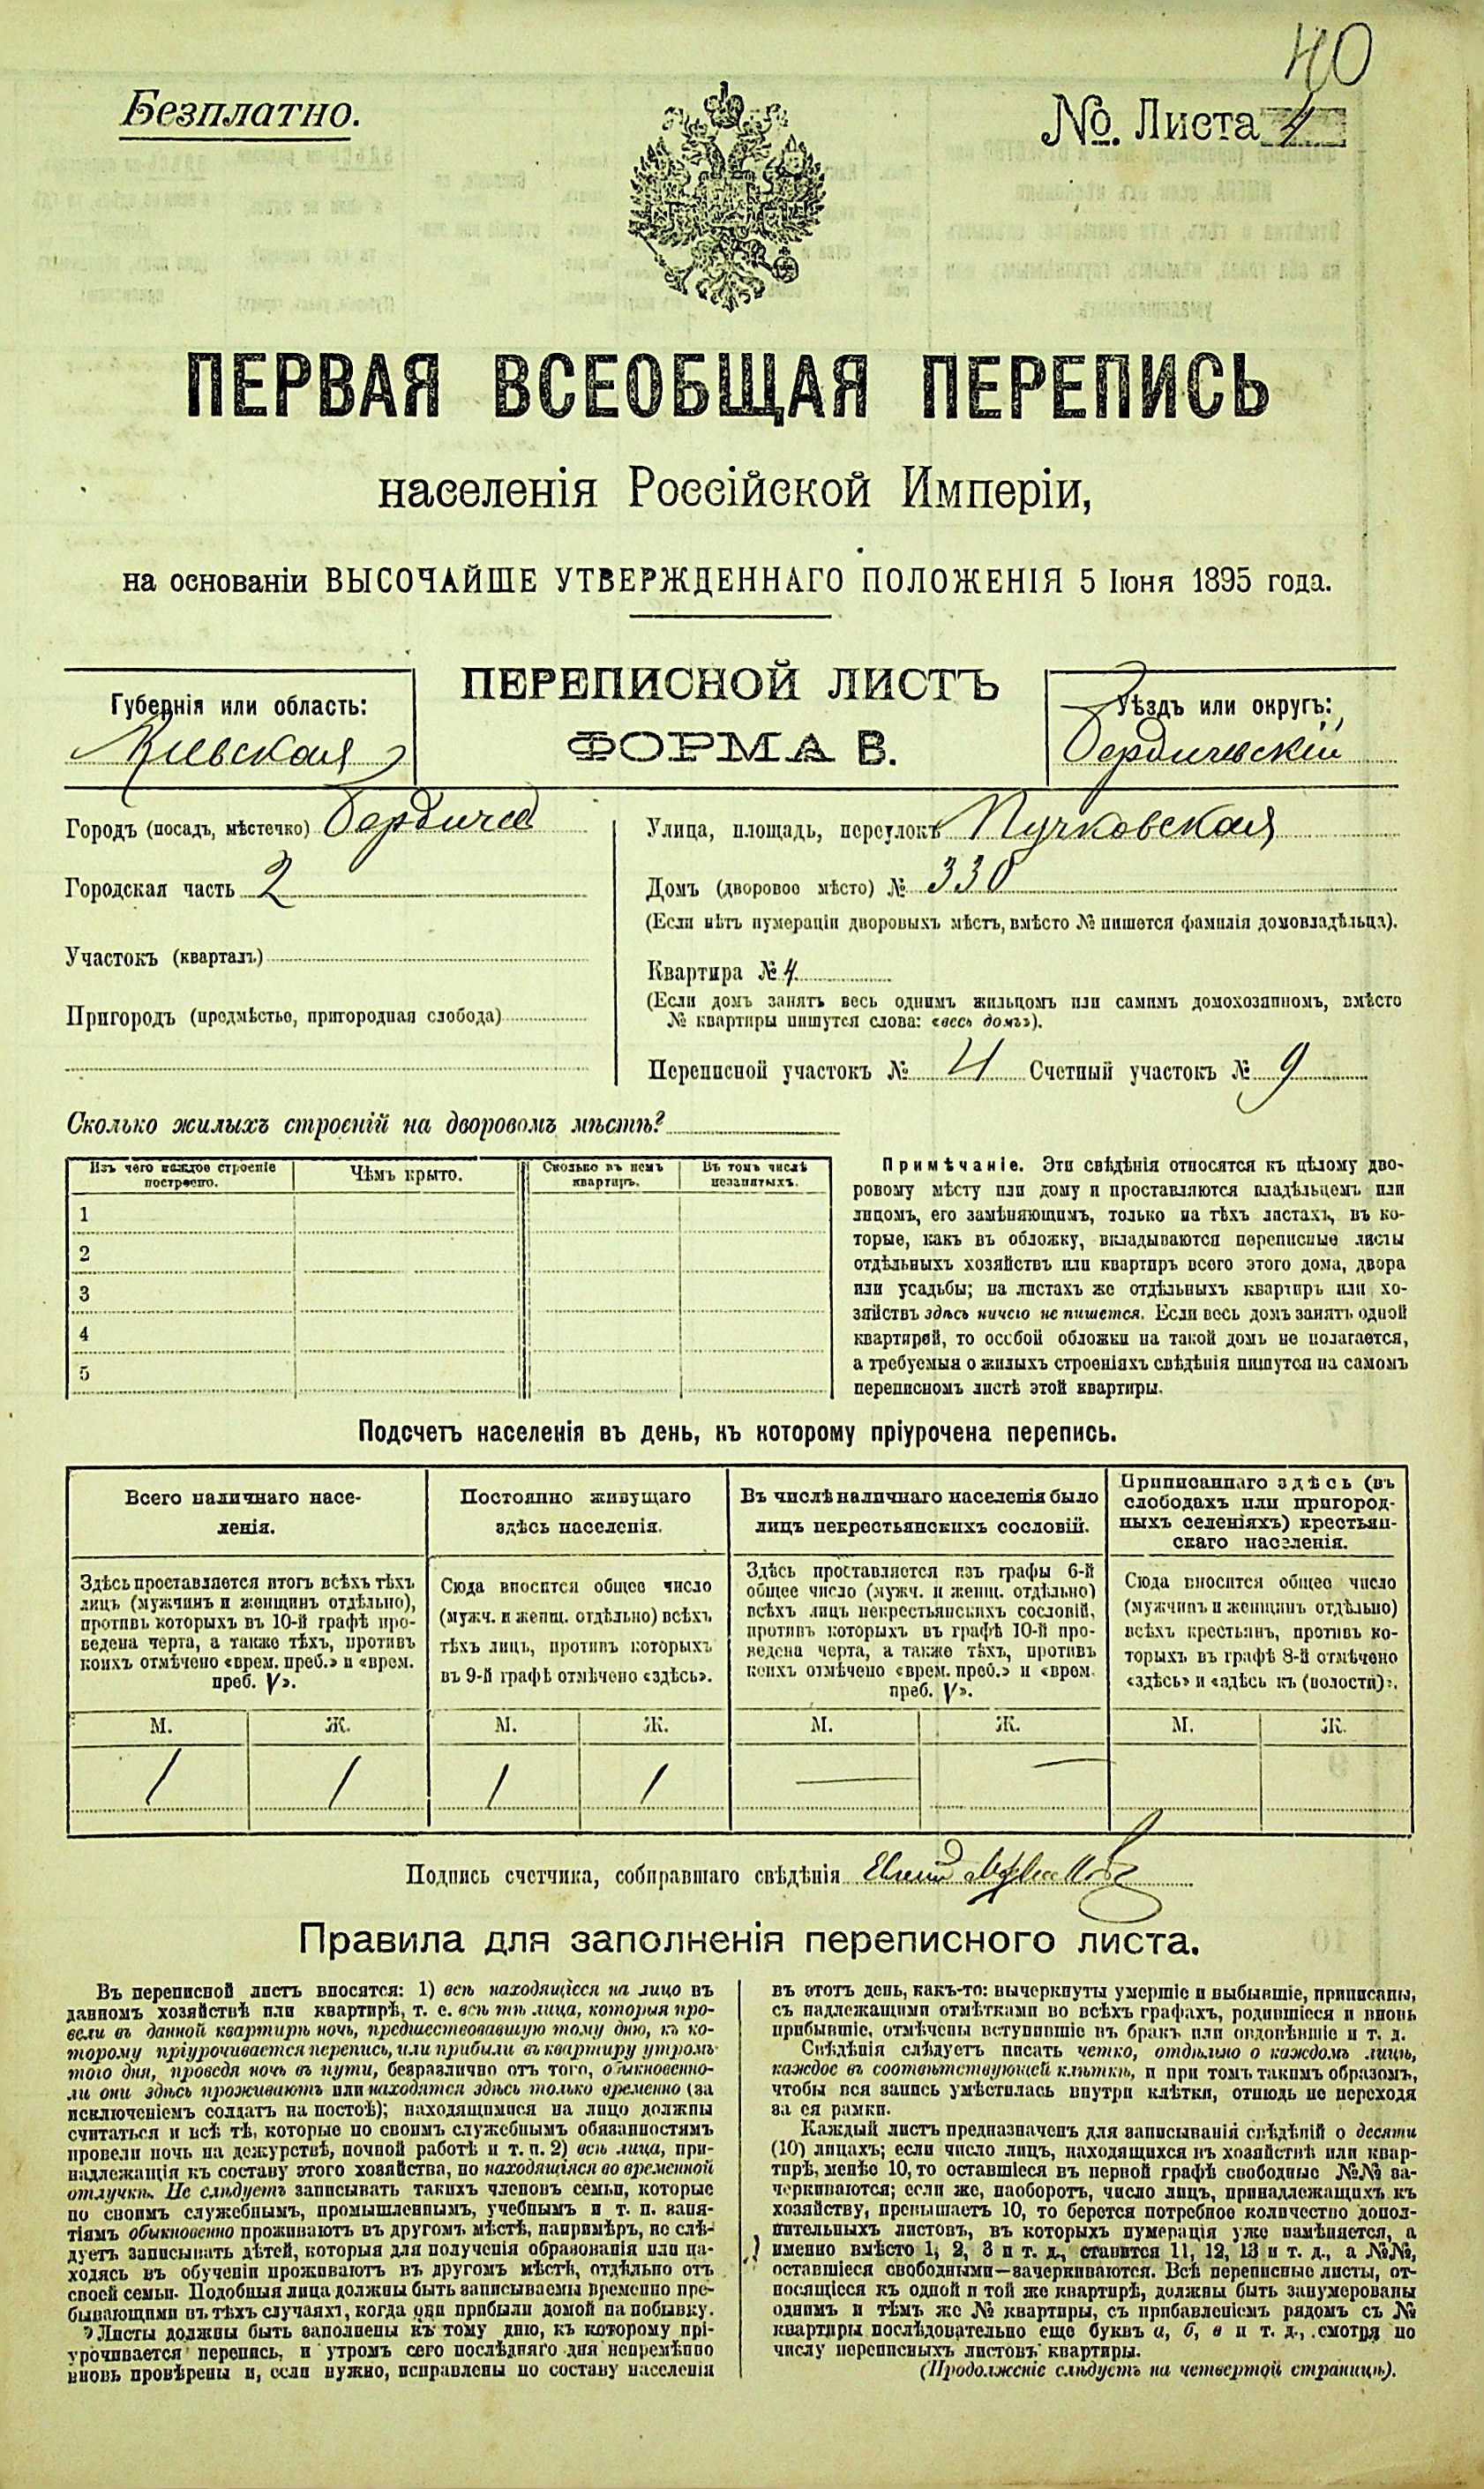 40
Безплатно.
№. Листа 4
ПЕРВАЯ ВСЕОБЩАЯ ПЕРЕПИСЬ
населенія Россійской Имперіи,
на основаніи ВЫСОЧАЙШЕ УТВЕРЖДЕННАГО ПОЛОЖЕНІЯ 5 Іюня 1895 года.
ПЕРЕПИСНОЙ ЛИСТЪ
ФОРМА В.
Губернія или область:
Кіевская
Уѣздъ или округъ:
Бердичевскій
Городъ (посадъ, мѣстечко) Бердичев
Городская часть 2
Участокъ (кварталъ)
Пригородъ (предмѣстье, пригородная слобода)
Улица, площадь, переулокъ Пучковская
Домъ (дворовое мѣсто) № 330
(Если нѣтъ нумераціи дворовыхъ мѣстъ, вмѣсто № пишется фамилія домовладѣльца).
Квартира № 4
(Если домъ занятъ весь однимъ жильцомъ или самимъ домохозяиномъ, вмѣсто
№ квартиры пишутся слова: «весь домъ»).
Переписной участокъ № 4 Счетный участокъ № 9
Сколько жилыхъ строеній на дворовомъ мѣстѣ?
Изъ чего каждое строеніе
построено.
Чѣмъ крыто.
Сколько въ немъ
квартиръ.
Въ томъ числѣ
незанятыхъ.
1
2
3
4
5
Примѣчаніе. Эти свѣдѣнія относятся къ цѣлому дво-
ровому мѣсту или дому и проставляются владѣльцемъ или
лицомъ, его замѣняющимъ, только на тѣхъ листахъ, въ ко-
торые, какъ въ обложку, вкладываются переписные листы
отдѣльныхъ хозяйствъ или квартиръ всего этого дома, двора
или усадьбы; на листахъ же отдѣльныхъ квартиръ или хо-
зяйствъ здѣсь ничего не пишется. Если весь домъ занятъ одной
квартирой, то особой обложки на такой домъ не полагается,
а требуемыя о жилыхъ строеніяхъ свѣдѣнія пишутся на самомъ
переписномъ листѣ этой квартиры.
Подсчетъ населенія въ день, къ которому пріурочена перепись.
Всего наличнаго насе-
ленія.
Постоянно живущаго
здѣсь населенія.
Въ числѣ наличнаго населенія было
лицъ некрестьянскихъ сословій.
Приписаннаго здѣсь (въ
слободахъ или пригород-
ныхъ селеніяхъ) крестьян-
скаго населенія.
Здѣсь проставляется итогъ всѣхъ тѣхъ
лицъ (мужчинъ и женщинъ отдѣльно),
противъ которыхъ въ 10-й графѣ про-
ведена черта, а также тѣхъ, противъ
коихъ отмѣчено «врем. преб.» и «врем.
преб. V».
Сюда вносится общее число
(мужч. и женщ. отдѣльно) всѣхъ
тѣхъ лицъ, противъ которыхъ
въ 9-й графѣ отмѣчено «здѣсь».
Здѣсь проставляется изъ графы 6-й
общее число (мужч. и женщ. отдѣльно)
всѣхъ лицъ некрестьянскихъ сословій,
противъ которыхъ въ графѣ 10-й про-
ведена черта, а также тѣхъ, противъ
коихъ отмѣчено «врем. преб.» и «врем.
преб. V».
Сюда вносится общее число
(мужчинъ и женщинъ отдѣльно)
всѣхъ крестьянъ, противъ ко-
торыхъ въ графѣ 8-й отмѣчено
«здѣсь» и «здѣсь къ (волости)».
М. Ж. М. Ж. М. Ж. М. Ж.
1 1 1 1 — —
Подпись счетчика, собиравшаго свѣдѣнія
Правила для заполненія переписного листа.
Въ переписной листъ вносятся: 1) всѣ находящіеся на лицо въ
данномъ хозяйствѣ или квартирѣ, т. е. всѣ тѣ лица, которыя про-
вели въ данной квартирѣ ночь, предшествовавшую тому дню, къ ко-
торому пріурочивается перепись, или прибыли въ квартиру утромъ
того дня, проведя ночь въ пути, безразлично отъ того, обыкновенно-
ли они здѣсь проживаютъ или находятся здѣсь только временно (за
исключеніемъ солдатъ на постоѣ); находящимися на лицо должны
считаться и всѣ тѣ, которые по своимъ служебнымъ обязанностямъ
провели ночь на дежурствѣ, ночной работѣ и т. п. 2) всѣ лица, при-
надлежащія къ составу этого хозяйства, но находящіяся во временной
отлучкѣ. Не слѣдуетъ записывать такихъ членовъ семьи, которые
по своимъ служебнымъ, промышленнымъ, учебнымъ и т. п. заня-
тіямъ обыкновенно проживаютъ въ другомъ мѣстѣ, напримѣръ, не слѣ-
дуетъ записывать дѣтей, которыя для полученія образованія или на-
ходясь въ обученіи проживаютъ въ другомъ мѣстѣ, отдѣльно отъ
своей семьи. Подобныя лица должны быть записываемы временно пре-
бывающими въ тѣхъ случаяхъ, когда они прибыли домой на побывку.
Листы должны быть заполнены къ тому дню, къ которому прі-
урочивается перепись, и утромъ сего послѣдняго дня непремѣнно
вновь провѣрены и, если нужно, исправлены по составу населенія
въ этотъ день, какъ-то: вычеркнуты умершіе и выбывшіе, приписаны,
съ надлежащими отмѣтками во всѣхъ графахъ, родившіеся и вновь
прибывшіе, отмѣчены вступившіе въ бракъ или овдовѣвшіе и т. д.
Свѣдѣнія слѣдуетъ писать четко, отдѣльно о каждомъ лицѣ,
каждое въ соотвѣтствующей клѣткѣ, и при томъ такимъ образомъ,
чтобы вся запись умѣстилась внутри клѣтки, отнюдь не переходя
за ея рамки.
Каждый листъ предназначенъ для записыванія свѣдѣній о десяти
(10) лицахъ; если число лицъ, находящихся въ хозяйствѣ или квар-
тирѣ, менѣе 10, то оставшіеся въ первой графѣ свободные №№ за-
черкиваются; если же, наоборотъ, число лицъ, принадлежащихъ къ
хозяйству, превышаетъ 10, то берется потребное количество допол-
нительныхъ листовъ, въ которыхъ нумерація уже измѣняется, а
именно вмѣсто 1, 2, 3 и т. д., ставится 11, 12, 13 и т. д., а №№,
оставшіеся свободными—зачеркиваются. Всѣ переписные листы, от-
носящіеся къ одной и той же квартирѣ, должны быть занумерованы
однимъ и тѣмъ же № квартиры, съ прибавленіемъ рядомъ съ №
квартиры послѣдовательно еще буквъ а, б, в и т. д., смотря по
числу переписныхъ листовъ квартиры.
(Продолженіе слѣдуетъ на четвертой страницѣ).